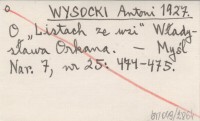 WYSOCKI Antoni 1927.
O „Listach ze wsi” Włady-
sława Orkana. — Myśl
Nar. 7, nr 25: 474-475.